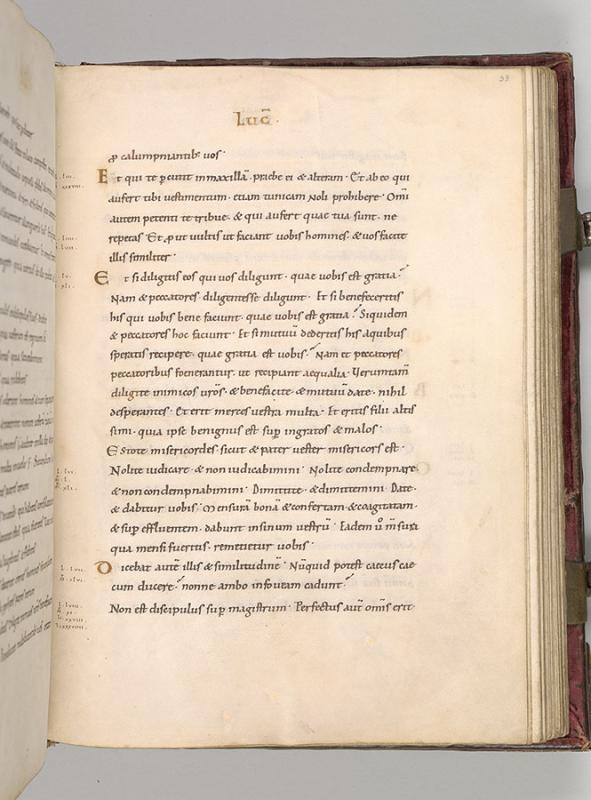 33
Luc̄.
ꝓ calumpniantib; uos.
Et qui te ꝑcutit in maxillā. praebe ei & alteram. Et ab eo qui
aufert tibi uestimentum. etiam tunicam noli prohibere. Omī
autem petenti te tribue. & qui aufert quae tua sunt. ne
repetas. Et ꝓut uultis ut faciant uobis homines. & uos facite
illis similiter.
Et si diligitis eos qui uos diligunt. quae uobis est gratia?
Nam & peccatores diligentes se diligunt. Et si benefeceritis
his qui uobis bene faciunt. quae uobis est gratia? Siquidem
& peccatores hoc faciunt. Et si mutuū dederitis his a quibus
speratis recipere. quae gratia est uobis? Nam et peccatores
peccatoribus foenerantur. ut recipiant aequalia. Uerumtam̄
diligite inimicos uros̄. & benefacite & mutuū date. nihil
desperantes. Et erit merces uestra multa. Et eritis filii altis
simi. quia ipse benignus est sup̄ ingratos & malos.
Estote misericordes sicut & pater uester misericors est.
Nolite iudicare. & non iudicabimini. Nolite condempnare.
& non condempnabimini. Dimittite. & dimittemini. Date.
& dabitur uobis. Mensurā bonā & confertam. & coagitatam.
& sup̄ effluentem. dabunt in sinum uestrū. Eadem ů m̄sura
qua mensi fueritis. remetietur uobis.
Dicebat autē illis & similitudinē. Nūquid potest caecus cae
cum ducere? nonne ambo in foueam cadunt?
Non est discipulus sup̄ magistrum. Perfectus aut̄ omīs erit